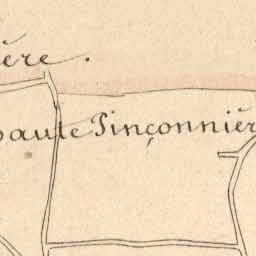 ère.
haute Pinçonnièr